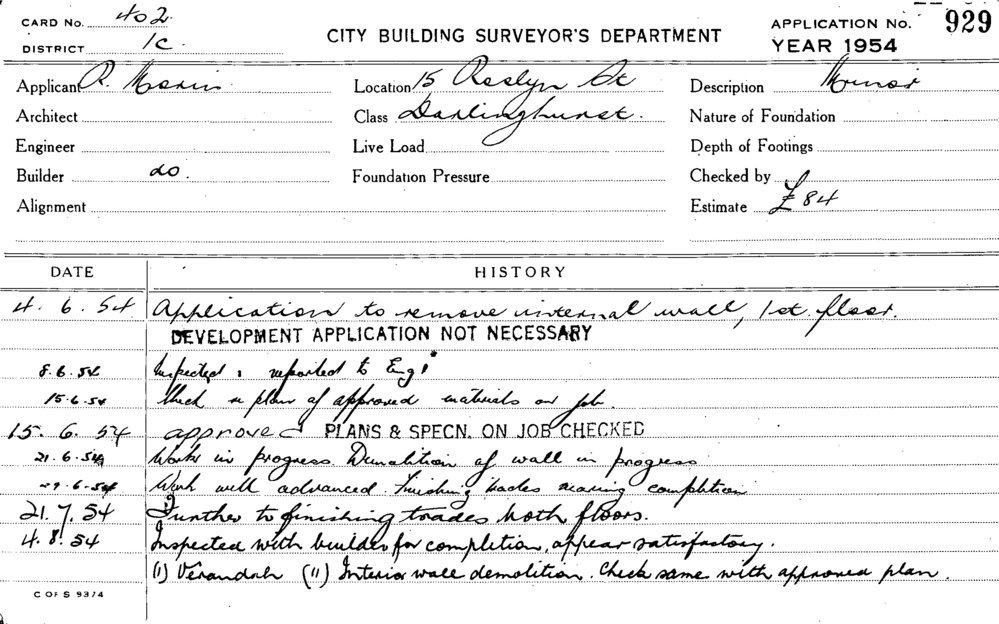 CARD No. 402
DISTRICT 1C
CITY BUILDING SURVEYOR'S DEPARTMENT
APPLICATION No. 929
YEAR 1954
Applicant R.
Location 15 Roslyn St
Description Minor
Architect
Class Darlinghurst.
Nature of Foundation
Engineer
Live Load
Depth of Footings
Builder do.
Foundation Pressure
Checked by
Alignment
Estimate £84
DATE HISTORY
4. 6. 54 Application to remove internal wall, 1st. floor.
DEVELOPMENT APPLICATION NOT NECESSARY
8.6.54 Inspected & reported to Eng
15.6.54 plan of approved materials on job
15. 6. 54 approved PLANS & SPECN. ON JOB CHECKED
21.6.54 Works in progress. Demolition of wall in progress
29.6.54 Work well advanced. Finishing trades nearing completion
21.7.54 Further to finishing trades both floors.
4.8.54 Inspected with builder for completion, appear satisfactory.
(I) Verandah (II) Interior wall demolition. Check same with approved plan.
C OF S 93/4